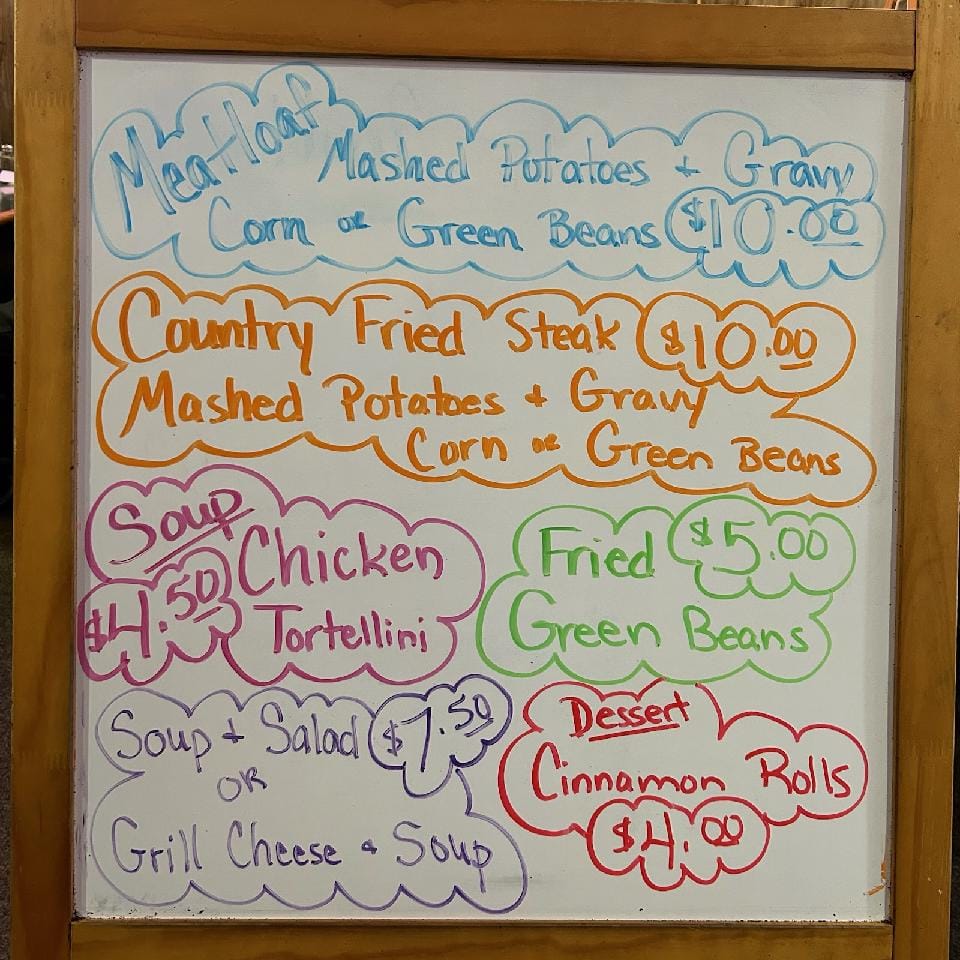 Meatloaf Mashed Potatoes + Gravy
Corn or Green Beans $10.00
Country Fried Steak $10.00
Mashed Potatoes + Gravy
Corn or Green Beans
Soup
Chicken
$4.50
Tortellini
Fried $5.00
Green Beans
Soup + Salad $7.50
OR
Grill Cheese + Soup
Dessert
Cinnamon Rolls
$4.00